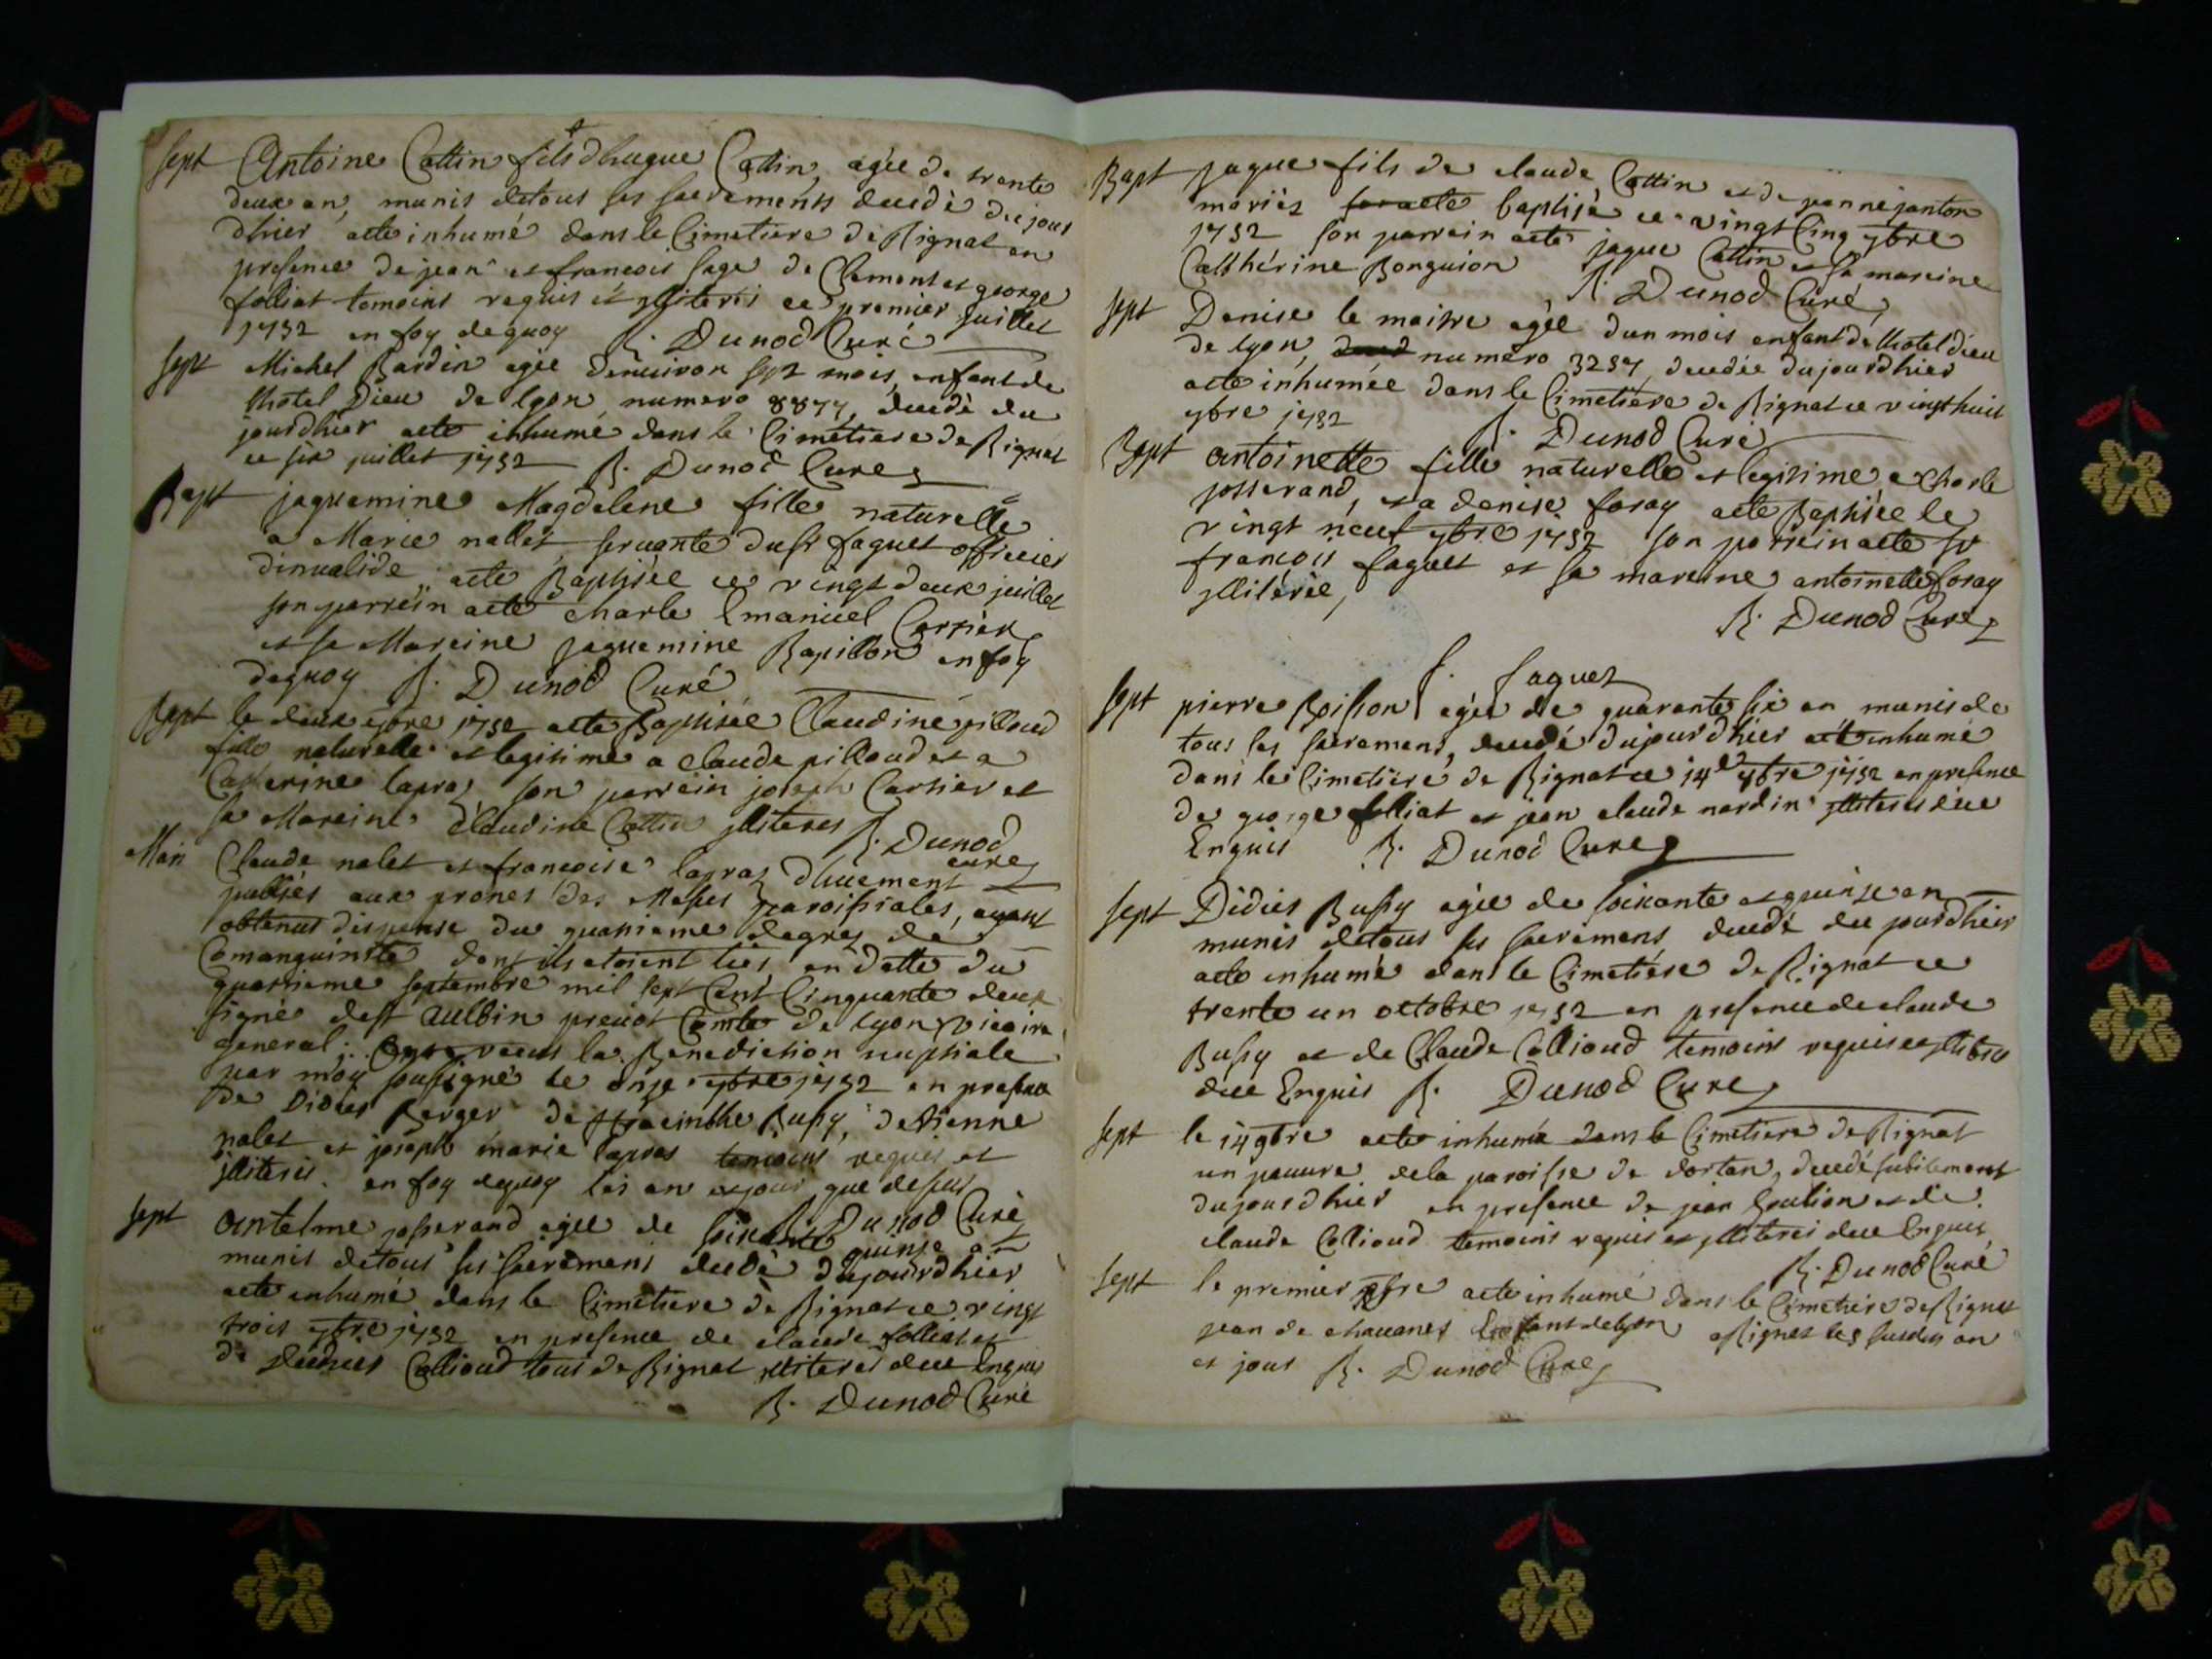 Sept Antoine Cattin fils d hugue Cattin, agée de trente
deux an, munis detous ses sacrements decedé du jour
dhier aete inhumé dans le Cimetiere de Rignat en
presence de jean et francois sage de Clemont et george
folliat temoins requis et jlliterés ce premier juillet
1752 en foy dequoy R. Dunod Curé
Sept Michel Bardin agée denuiron sept mois, enfant de
lhotel Dieu de lyon numero 8877, decedé du
jourdhier aete inhumé dans le Cimetiere de Rignat
ce six juillet 1752 R. Dunod Cure
Bapt jaquemine Magdelene fille naturelle
a Marie nallet seruante du sr faguet officier
dinualide aete Baptisée ce vingt deux juillet
son parrein aete charle Emanuel Cartier
et sa Mareine jaquemine Papillon en foy
dequoy R. Dunod Curé
Bapt le deux 7bre 1752 aete Baptisée Claudine pilloud
fille naturelle et legitime a claude pilloud et a
Catherine lapras son parrein joseph Cartier et
sa Mareine Claudine Cattin jlliteres R. Dunod
cure
Mari Claude nalet et francoise lapraz dhuement
publiés aux prones des Messes paroissiales, ayant
obtenus dispense du quatrieme degrez de
Comanguinité dont ils etoient liés en datte du
quatrieme septembre mil sept Cent Cinquante deux
signé de st aulbin preuot Comte de lyon vicaire
general: receus la Benediction nuptiale
par moy soussigné le onze 7bre 1752 en presence
de Didier Berger de Hyacinthe Bussy, detienne
nalet et joseph marie lapras temoins requis et
jlliteris. en foy dequoy les an et jour que dessus
R. Dunod Curé
Sept Antelme josserand agée de soixante quinze an
munis detous ses sacremens decedé dujourdhier
aete inhumé dans le Cimetiere de Rignat ce vingt
trois 7bre 1752 en presence de claude folliat et
de Collioud tous de Rignat jlliteres due Enquis
R. Dunod Curé
Bapt jaque fils de claude Cattin et de jeanne janton
mariés baptisé ce vingt Cinq 7bre
1752 son parrein aete jaque Cattin et sa mareine
Catthérine Bonguion R. Dunod Curé
Sept Denise le maitre agée dun mois enfant de lhotel dieu
de lyon, numéro 3257 decedée dujourdhier
aete inhumée dans le Cimetiere de Rignat ce vingt huit
7bre 1752 R. Dunod Curé
Bapt antoinette fille naturelle et legitime a charle
josserand, et a denise foray aete Baptisée le
vingt neuf 7bre 1752 son parrein aete sr
francois faguet et sa mareine antoinette foray
jlliterée,
R. Dunod Cure
f. faguet
Sept pierre Poisson agée de quarante six an munis de
tous ses sacremens, decedé dujourdhier aete inhumé
dans le Cimetiere de Rignat ce 14e 8bre 1752 en presence
de george folliat et jean claude nardin jlliteres due
Enquis R. Dunod Cure
Sept Didier Bussy agée de soixante et quinze an
munis detous ses sacremens decedé du jourdhier
aete inhumé dans le Cimetiére de Rignat ce
trente un octobre 1752 en presence de claude
Bussy et de Claude Collioud temoins requis et jlliteres
due Enquis R. Dunod Cure
Sept le 14 9bre aete inhumé dans le Cimetiere de Rignat
un pauure dela paroisse de dortan, decedé subitement
dujourdhier en presence de jean Goulion et de
claude Collioud temoins requis et jlliteres due Enquis
R. Dunod Curé
Sept le premier aete inhumé dans le Cimetiere de Rignat
jean de chauanes Enfant delyon a Rignat les susdits an
et jour R. Dunod Cure